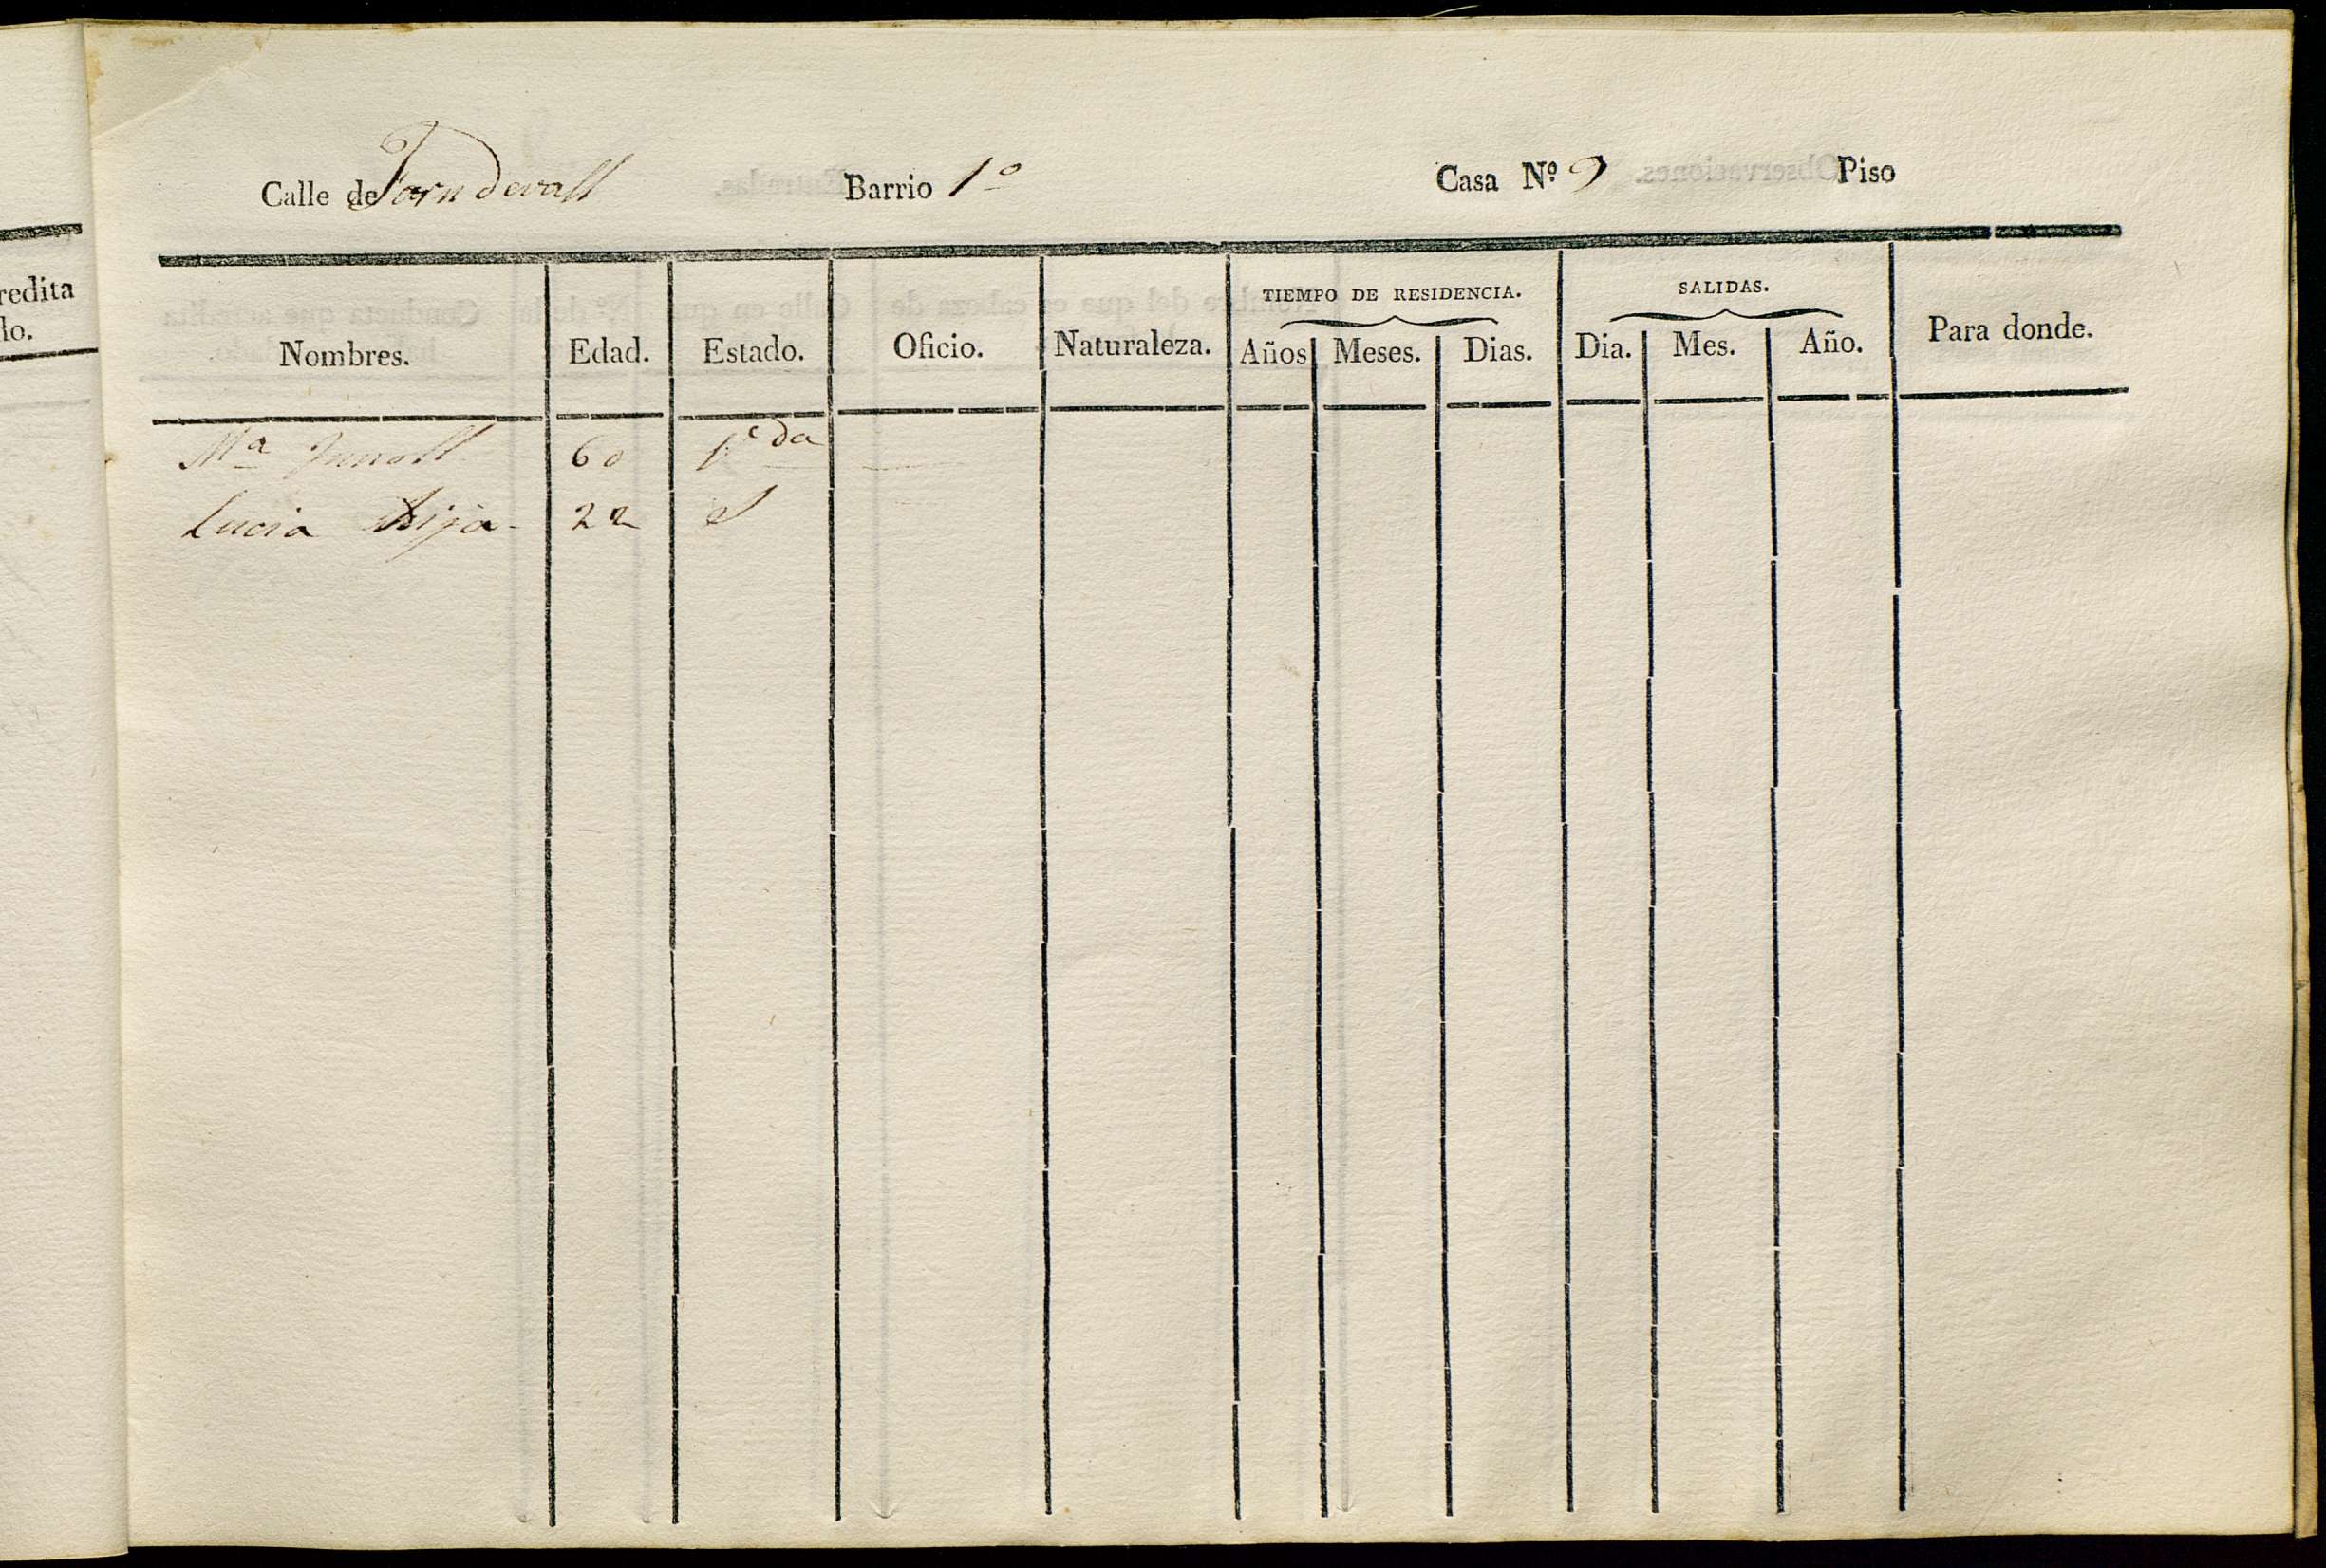 redita
lo.
Calle de Forn devall Barrio 1º Casa Nº 9 Piso
TIEMPO DE RESIDENCIA. SALIDAS.
Nombres. Edad. Estado. Oficio. Naturaleza. Años Meses. Dias. Dia. Mes. Año. Para donde.
Mª 60
Lucia hija 22 S